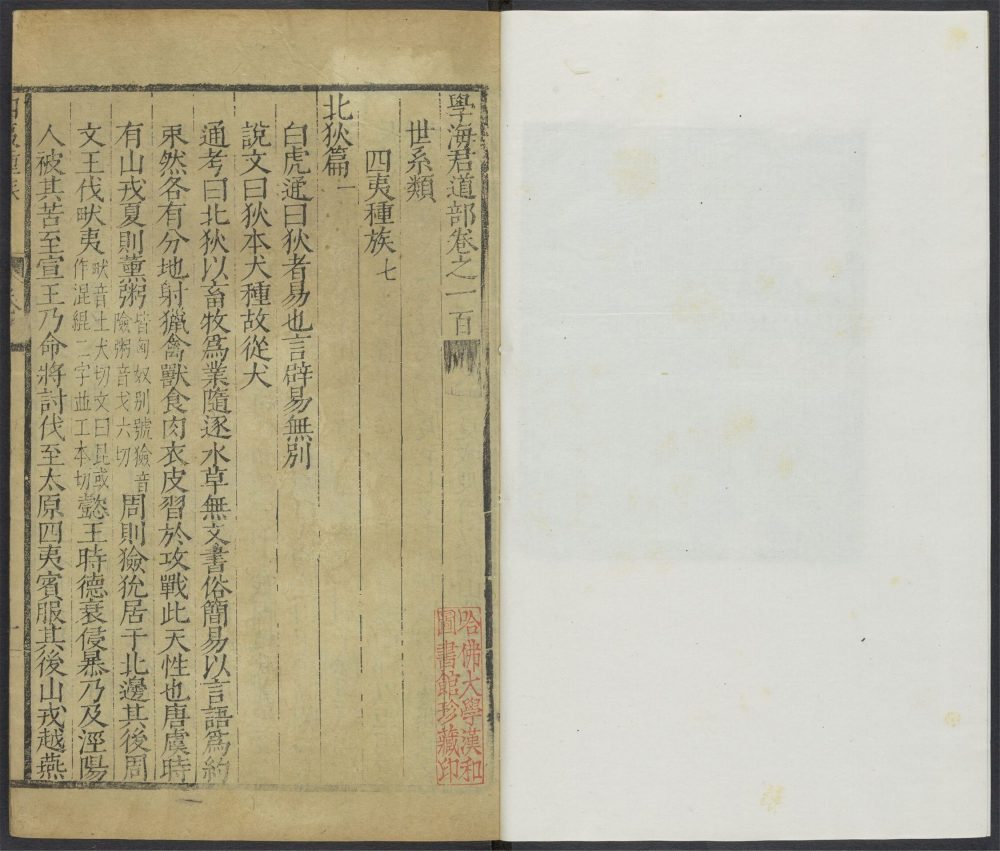 學海君道部卷之一百
世系類
四夷種族七
北狄篇一
白虎通曰狄者易也言辟易無別
說文曰狄本犬種故從犬
通考曰北狄以畜牧爲業隨逐水草無文書俗簡易以言語爲約
束然各有分地射獵禽獸食肉衣皮習於攻戰此天性也唐虞時
有山戎夏則薰粥皆匈奴别號獫音險粥音戈六切周則獫狁居于北邊其後周
文王伐畎夷畎音工犬切文曰昆或作混緄二字並工本切懿王時德衰侵暴乃及涇陽
人被其苦至宣王乃命將討伐至太原四夷賓服其後山戎越燕
四夷種族
哈佛大學漢和
圖書館珍藏印